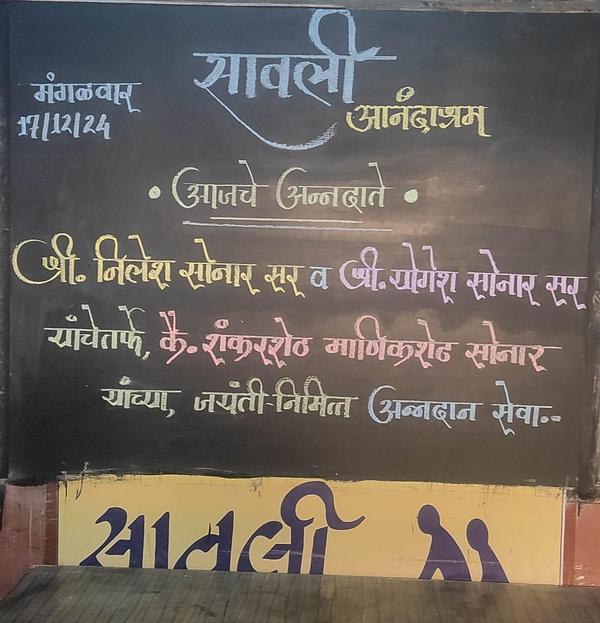 सावली
मंगळवार
17/12/24
आनंदाश्रम
• आजचे अन्नदाते •
श्री. निलेश सोनार सर व श्री. योगेश सोनार सर
यांचेतर्फे, कै. शंकरशेठ माणिकशेठ सोनार
यांच्या, जयंती-निमित्त अन्नदान सेवा..
सावली